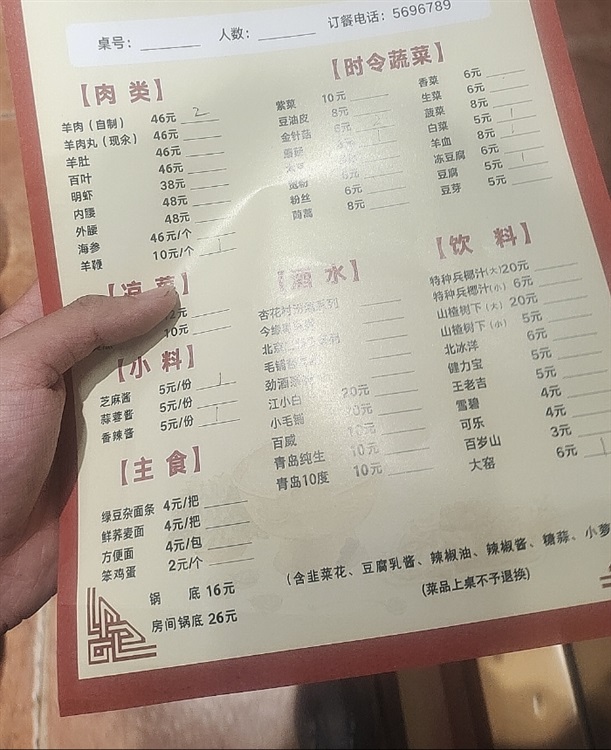 桌号：
人数：
订餐电话：5696789
【肉 类】
羊肉（自制） 46元 2
羊肉丸（现汆） 46元
羊肚 46元
百叶 46元
明虾 38元
内腰 48元
外腰 48元
海参 46元/个
羊鞭 10元/个
【时令蔬菜】
紫菜 10元
豆油皮 8元
金针菇 6元
粉丝 6元
茼蒿 8元
香菜 6元
生菜 6元
菠菜 8元
白菜 5元
羊血 8元
冻豆腐 6元
豆腐 5元
豆芽 5元
10元
【小 料】
芝麻酱 5元/份
蒜蓉酱 5元/份
香辣酱 5元/份
【主 食】
绿豆杂面条 4元/把
鲜荞麦面 4元/把
方便面 4元/包
笨鸡蛋 2元/个
【酒 水】
江小白 20元
小毛铺 20元
百威 10元
青岛纯生 10元
青岛10度 10元
【饮 料】
特种兵椰汁(大)20元
特种兵椰汁(小) 6元
山楂树下（大） 20元
山楂树下（小） 5元
北冰洋 6元
健力宝 5元
王老吉 5元
雪碧 4元
可乐 4元
百岁山 3元
大窑 6元
锅 底 16元
房间锅底 26元
(含韭菜花、豆腐乳酱、辣椒油、辣椒酱、糖蒜、小萝
(菜品上桌不予退换)